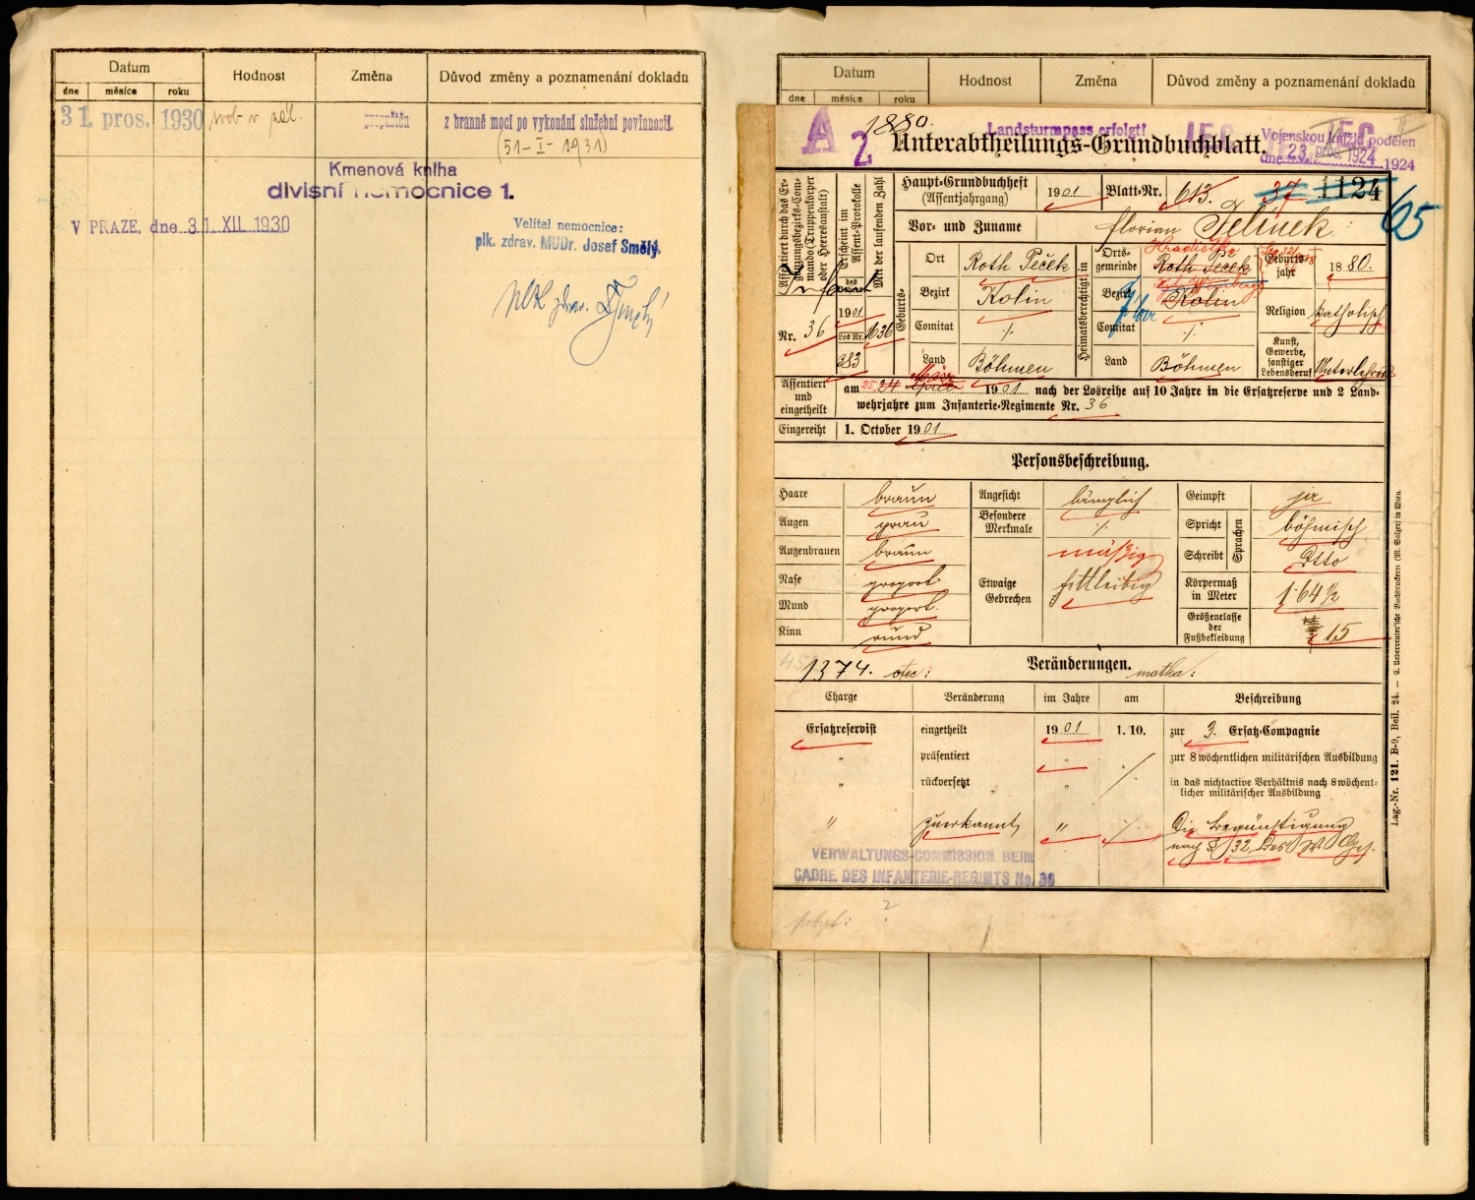 Datum
Hodnost
Změna
Důvod změny a poznamenání dokladu
dne měsíce roku
31. pros. 1930 svob v zál. propuštěn z branné moci po vykonání služební povinnosti.
(51-I-1931)
Kmenová kniha
divisní nemocnice 1.
V PRAZE, dne 31. XII. 1930
Velitel nemocnice:
plk. zdrav. MUDr. Josef Smělý.
Datum
Hodnost
Změna
Důvod změny a poznamenání dokladu
dne měsíce roku
A
2
1880.
Landsturmpass erfolgt!
Vojenskou knížku podělen
dne 23. pros. 1924 1924
Unterabtheilungs-Grundbuchblatt.
Haupt-Grundbuchheft
(Assentjahrgang)
1901
Blatt-Nr. 613. 37 1124
65
Vor- und Zuname
Florian Jelinek
Assentiert durch das Ergänzungsbezirks-Commando (Truppenkörper oder Heeresanstalt)
Nr. 36
Erscheint im Assent-Protokolle
des
1901
Los Nr.
383
Mit der laufenden Zahl
1636
Geburts-
Ort Roth Peček
Bezirk Kolin
Comitat ·/.
Land Böhmen
Heimatsberechtigt in
Ortsgemeinde Roth Peček
Hradištko
Bezirk Kolin
Comitat ·/.
Land Böhmen
Geburtsjahr 1880.
Religion katholisch
Kunst, Gewerbe, sonstiger Lebensberuf Unterlehrer
Assentiert und eingetheilt
am 25 24 März April 1901 nach der Losreihe auf 10 Jahre in die Ersatzreserve und 2 Land-
wehrjahre zum Infanterie-Regimente Nr. 36
Eingereiht 1. October 1901
Personsbeschreibung.
Haare braun
Augen grau
Augenbrauen braun
Nase proport.
Mund proport.
Kinn rund
Angesicht länglich
Besondere Merkmale ·/.
Etwaige Gebrechen mäßig fettleibig
Geimpft ja
Sprachen
Spricht böhmisch
Schreibt dtto
Körpermaß in Meter 1·64½
Größenclasse der Fußbekleidung 15
1374. otec:
Veränderungen.
matka:
Charge Veränderung im Jahre am Beschreibung
Ersatzreservist eingetheilt 1901 1. 10. zur 3. Ersatz-Compagnie
" präsentiert " zur 8 wöchentlichen militärischen Ausbildung
" rückversetzt " in das nichtactive Verhältnis nach 8 wöchent-
licher militärischer Ausbildung
" zuerkannt " ·/. Die Begünstigung
nach § 32 des W. Ges.
VERWALTUNGS-COMMISSION BEIM
CADRE DES INFANTERIE-REGIMTS No. 36
Lag.-Nr. 121. B-9, Beil. 24. — C. Ueberreuter'sche Buchdruckerei (M. Salzer) in Wien.